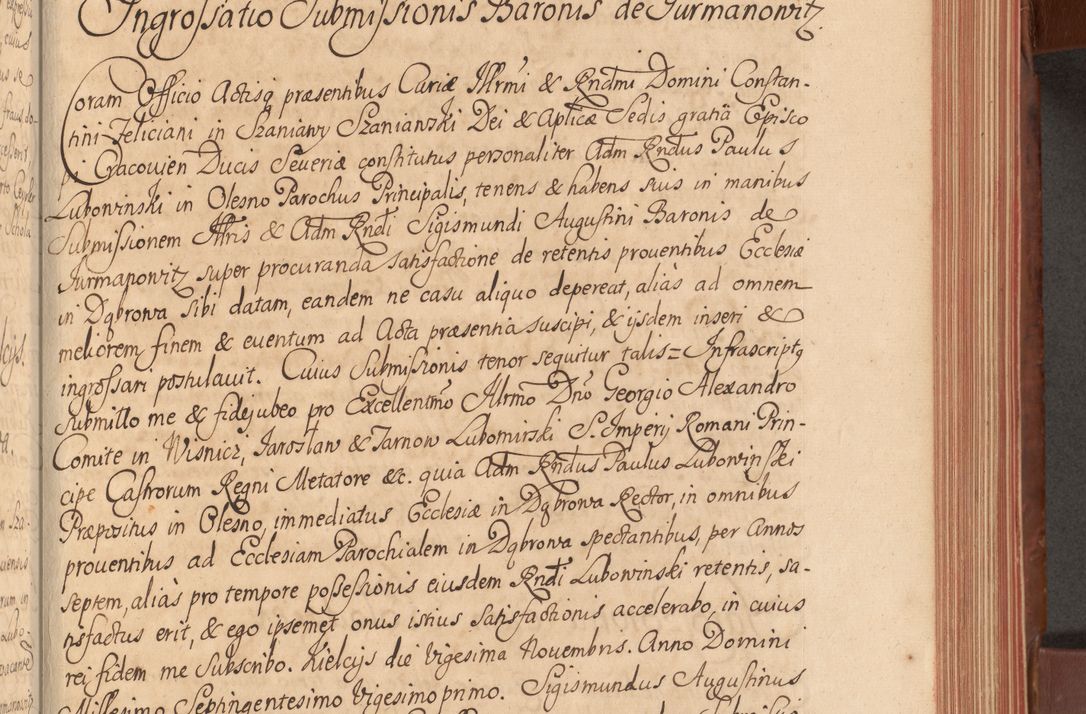 Ingrossatio Submissionis Baronis de Jurmanowitz
Coram Officio Actisq praesentibus Curiæ Illrmi & Rndmi Domini Constan-
tini Feliciani in Szaniawy Szaniawski Dei & Aplicæ Sedis gratiâ Episco
pi Cracovien Ducis Severiæ constitutus personaliter Adm Rndus Paulus
Lubowinski in Olesno Parochus Principalis, tenens & habens suis in manibus
Submissionem Illris & Adm Rndi Sigismundi Augustini Baronis de
Jurmanowitz super procuranda satisfactione de retentis proventibus Ecclesiæ
in Dąbrowa sibi datam, eandem ne casu aliquo depereat, aliàs ad omnem
meliorem finem & eventum ad Acta præsentia suscipi, & ijsdem inseri &
ingrossari postulavit. Cuius Submissionis tenor sequitur talis= Infrascriptq
Submitto me & fidejubeo pro Excellentmo Illrmo Dno Georgio Alexandro
Comite in Wisnicz, Jaroslaw & Tarnow Lubomirski S. Imperij Romani Prin-
cipe Castrorum Regni Metatore &c. quia Adm Rndus Paulus Lubowinski
Præpositus in Olesno, immediatus Ecclesiæ in Dąbrowa Rector, in omnibus
proventibus ad Ecclesiam Parochialem in Dąbrowa spectantibus, per Annos
septem, aliàs pro tempore possessionis eiusdem Rndi Lubowinski retentis, sa-
tisfactus erit, & ego ipsemet onus istius Satisfactionis accelerabo, in cuius
rei fidem me Subscribo. Kielcijs die Vigesima Novembris. Anno Domini
Millesimo Septingentesimo Vigesimo primo. Sigismundus Augustinus